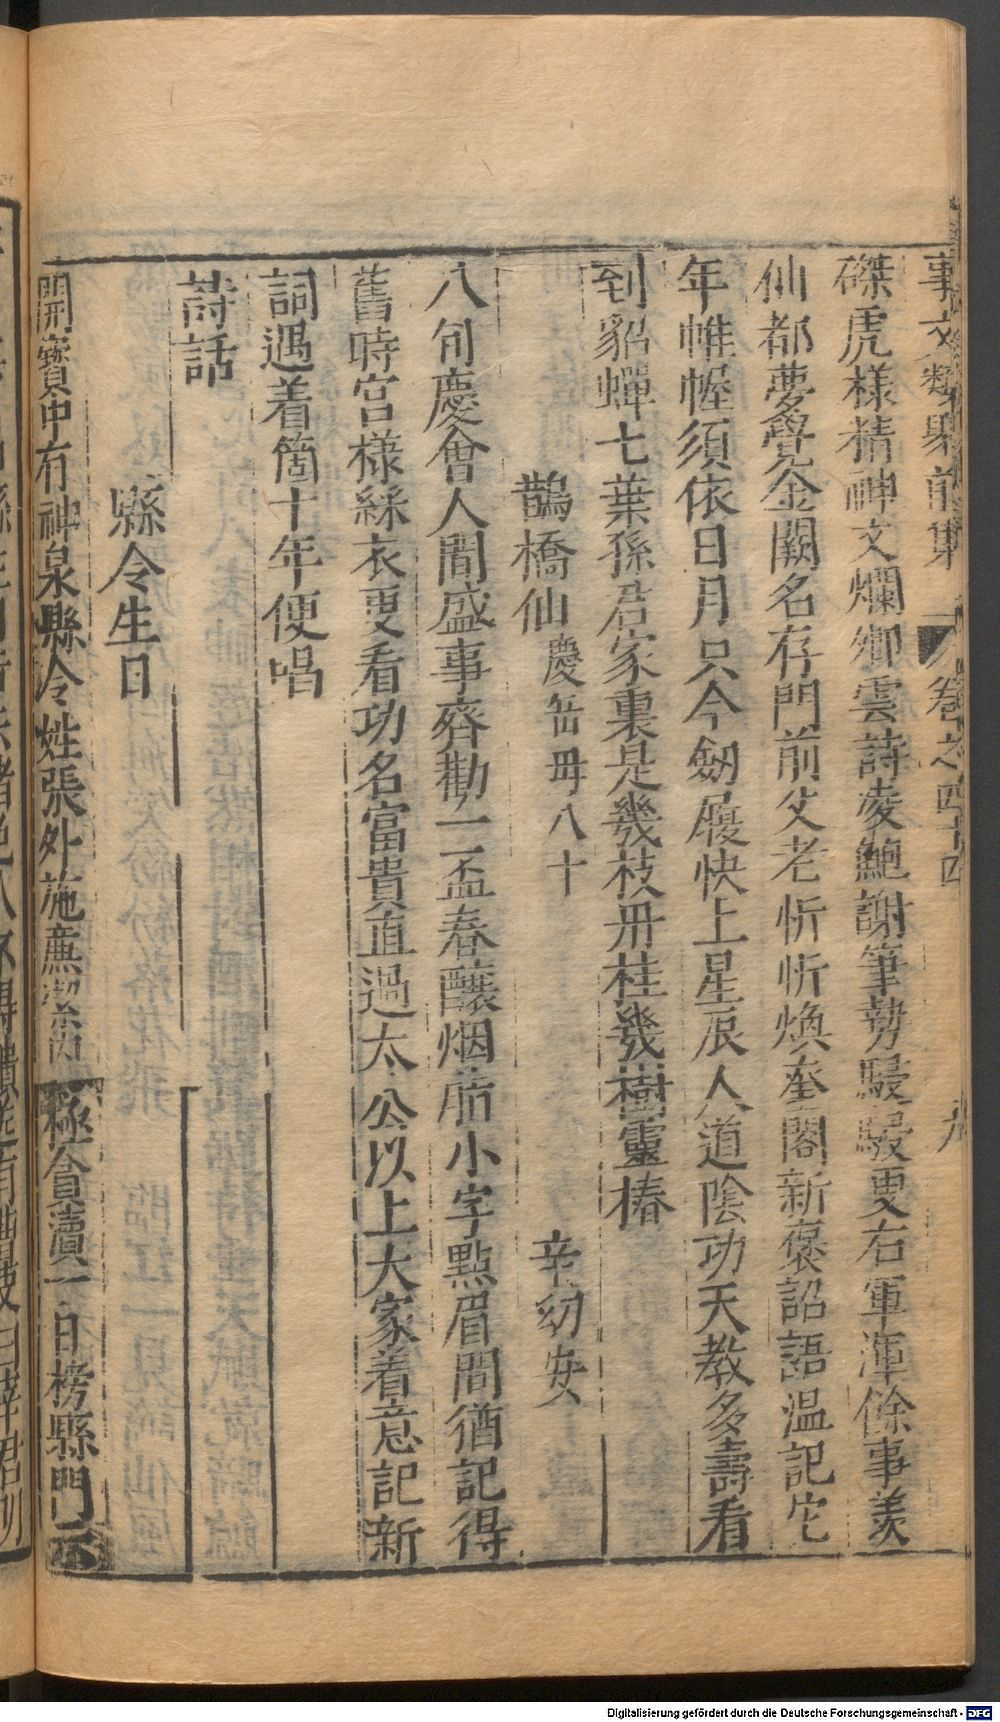 事文類聚前集 卷之四十四 九
磔虎樣精神文爛鄉雲詩凌鮑謝筆勢駸駸更右軍渾餘事羨
仙都夢覺金闕名存門前父老忻忻煥奎閣新褒詔語温記它
年帷幄須依日月只今劒履快上星辰人道陰功天教多壽看
到貂蟬七葉孫君家裏是幾枝丹桂幾樹靈椿
鵲橋仙 慶岳母八十 辛幼安
八旬慶會人間盛事齊勸一盃春釀烟脂小字點眉間猶記得
舊時宮樣綵衣更看功名富貴直過太公以上大家着意記新
詞遇着箇十年便唱
詩話
縣令生日
開寶中有神泉縣令姓張外施廉潔内極貪瀆一日榜縣門云
Digitalisierung gefördert durch die Deutsche Forschungsgemeinschaft - DFG